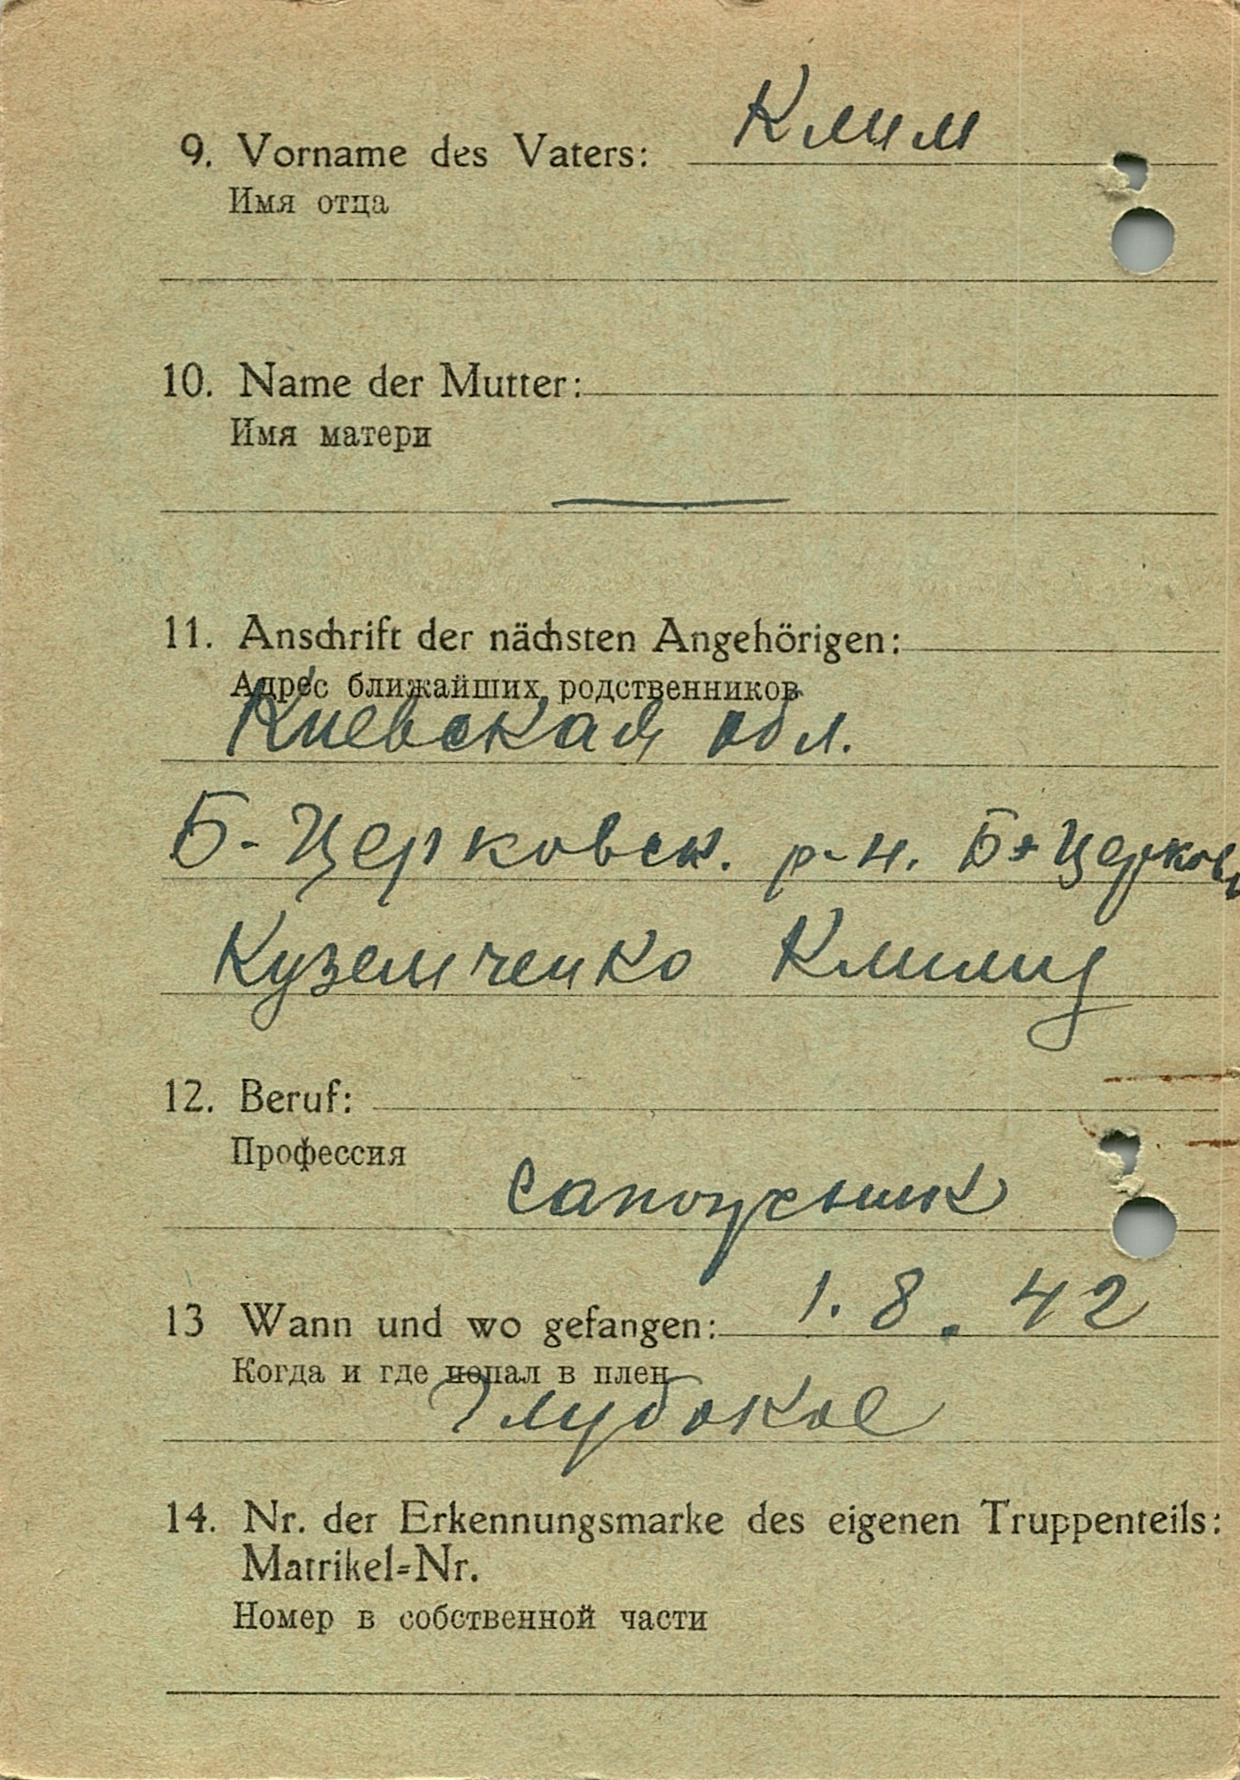 9. Vorname des Vaters: Клим
Имя отца
10. Name der Mutter:
Имя матери
—
11. Anschrift der nächsten Angehörigen:
Адрес ближайших родственников
Киевская обл.
Б-Церковск. р-н. Б-Церковь
Куземченко Климу
12. Beruf:
Профессия
13 Wann und wo gefangen: 1. 8. 42
Когда и где попал в плен
Глубокое
14. Nr. der Erkennungsmarke des eigenen Truppenteils:
Matrikel=Nr.
Номер в собственной части